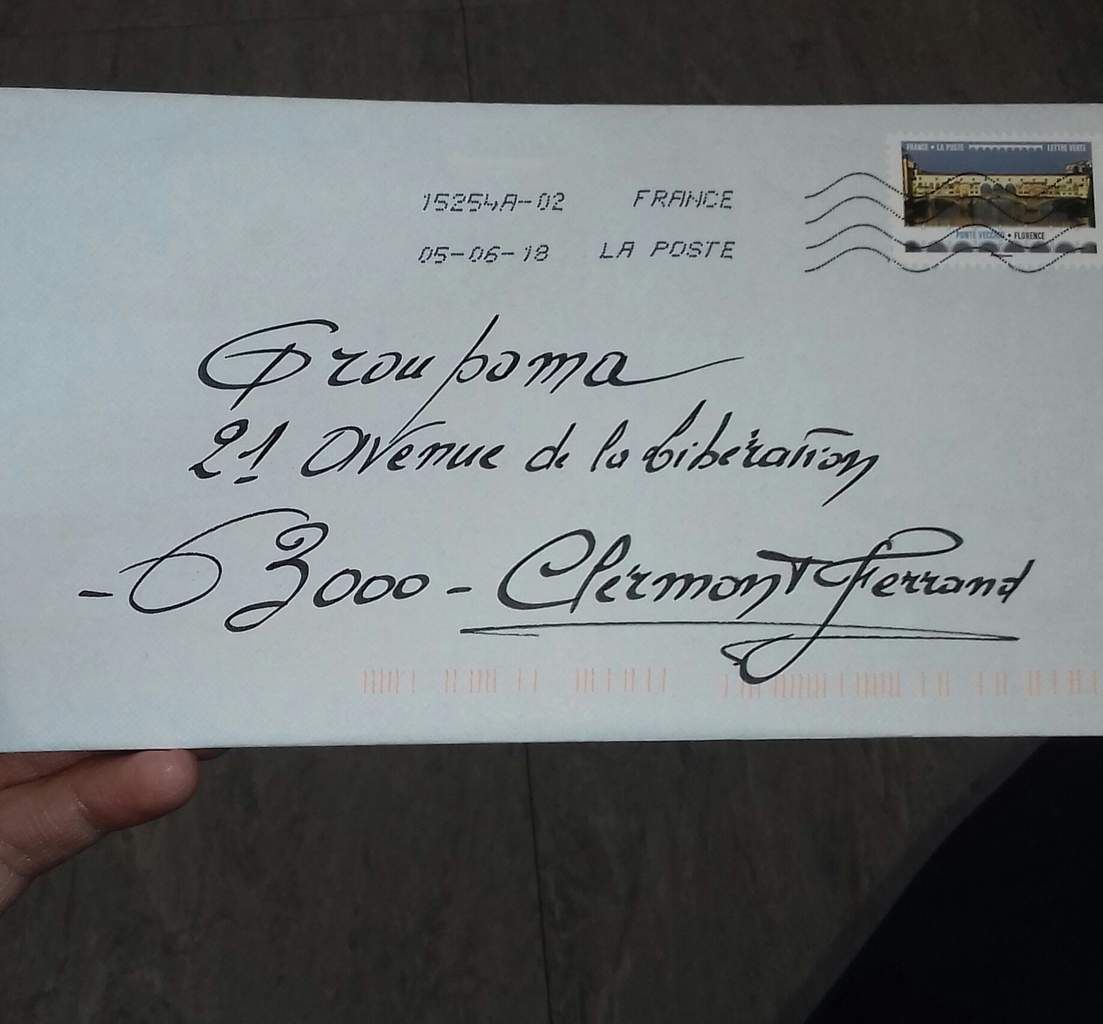 FRANCE • LA POSTE LETTRE VERTE
15254A-02 FRANCE
05-06-18 LA POSTE
PONTE VECCHIO • FLORENCE
Groupama
21 avenue de la Libération
- 63000 - Clermont Ferrand